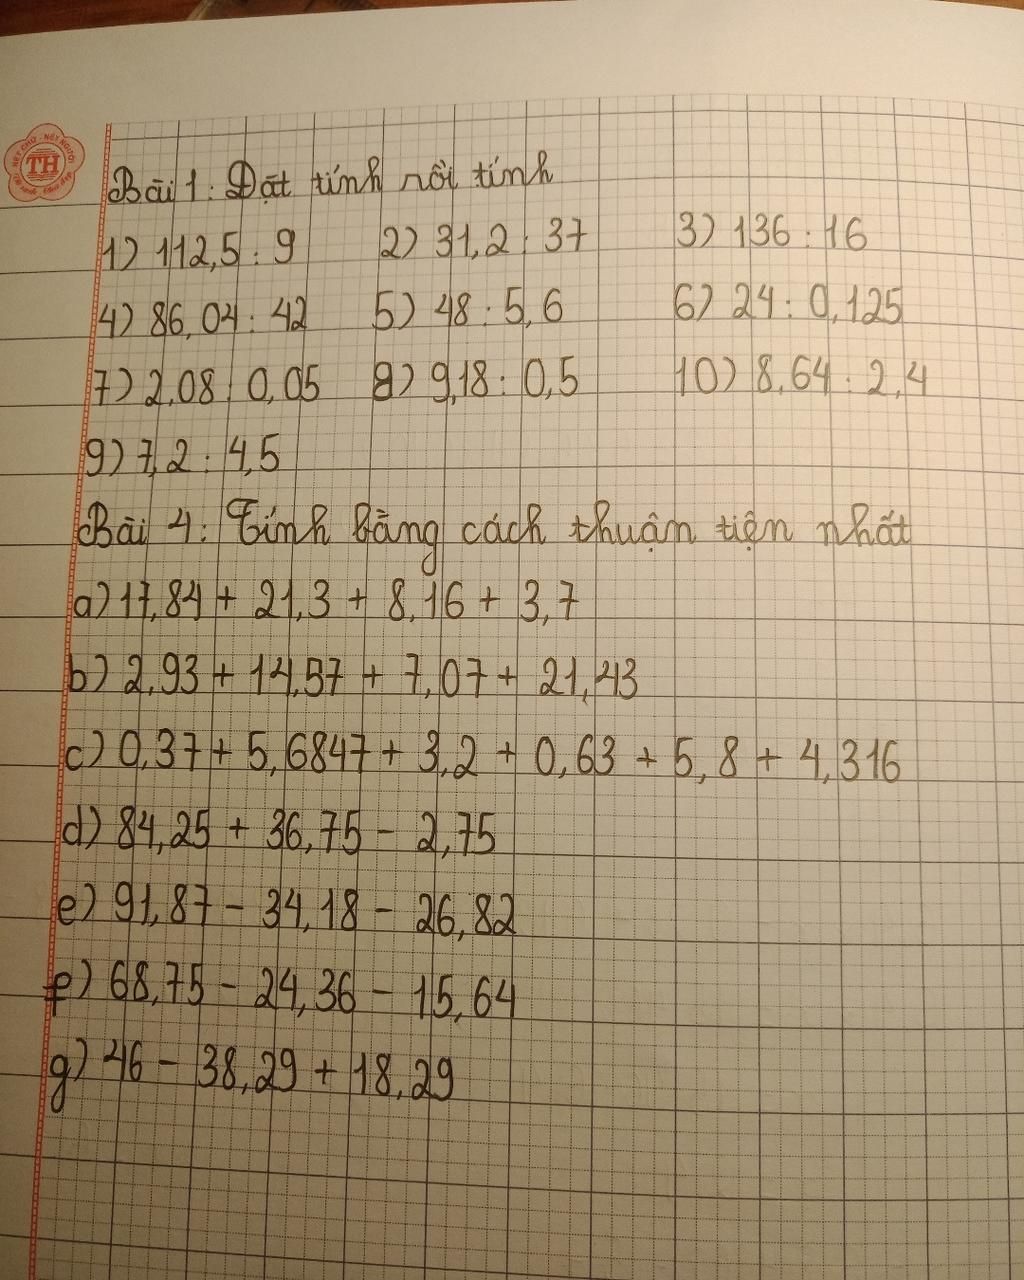 NÉT CHỮ - NẾT NGƯỜI
TH
Bài 1: Đặt tính rồi tính
1) 112,5 : 9 2) 31,2 : 37 3) 136 : 16
4) 86,04 : 42 5) 48 : 5,6 6) 24 : 0,125
7) 2,08 : 0,05 8) 9,18 : 0,5 10) 8,64 : 2,4
9) 7,2 : 4,5
Bài 4: Tính bằng cách thuận tiện nhất
a) 17,84 + 21,3 + 8,16 + 3,7
b) 2,93 + 14,57 + 7,07 + 21,43
c) 0,37 + 5,6847 + 3,2 + 0,63 + 5,8 + 4,316
d) 84,25 + 36,75 - 2,75
e) 91,87 - 34,18 - 26,82
f) 68,75 - 24,36 - 15,64
g) 46 - 38,29 + 18,29